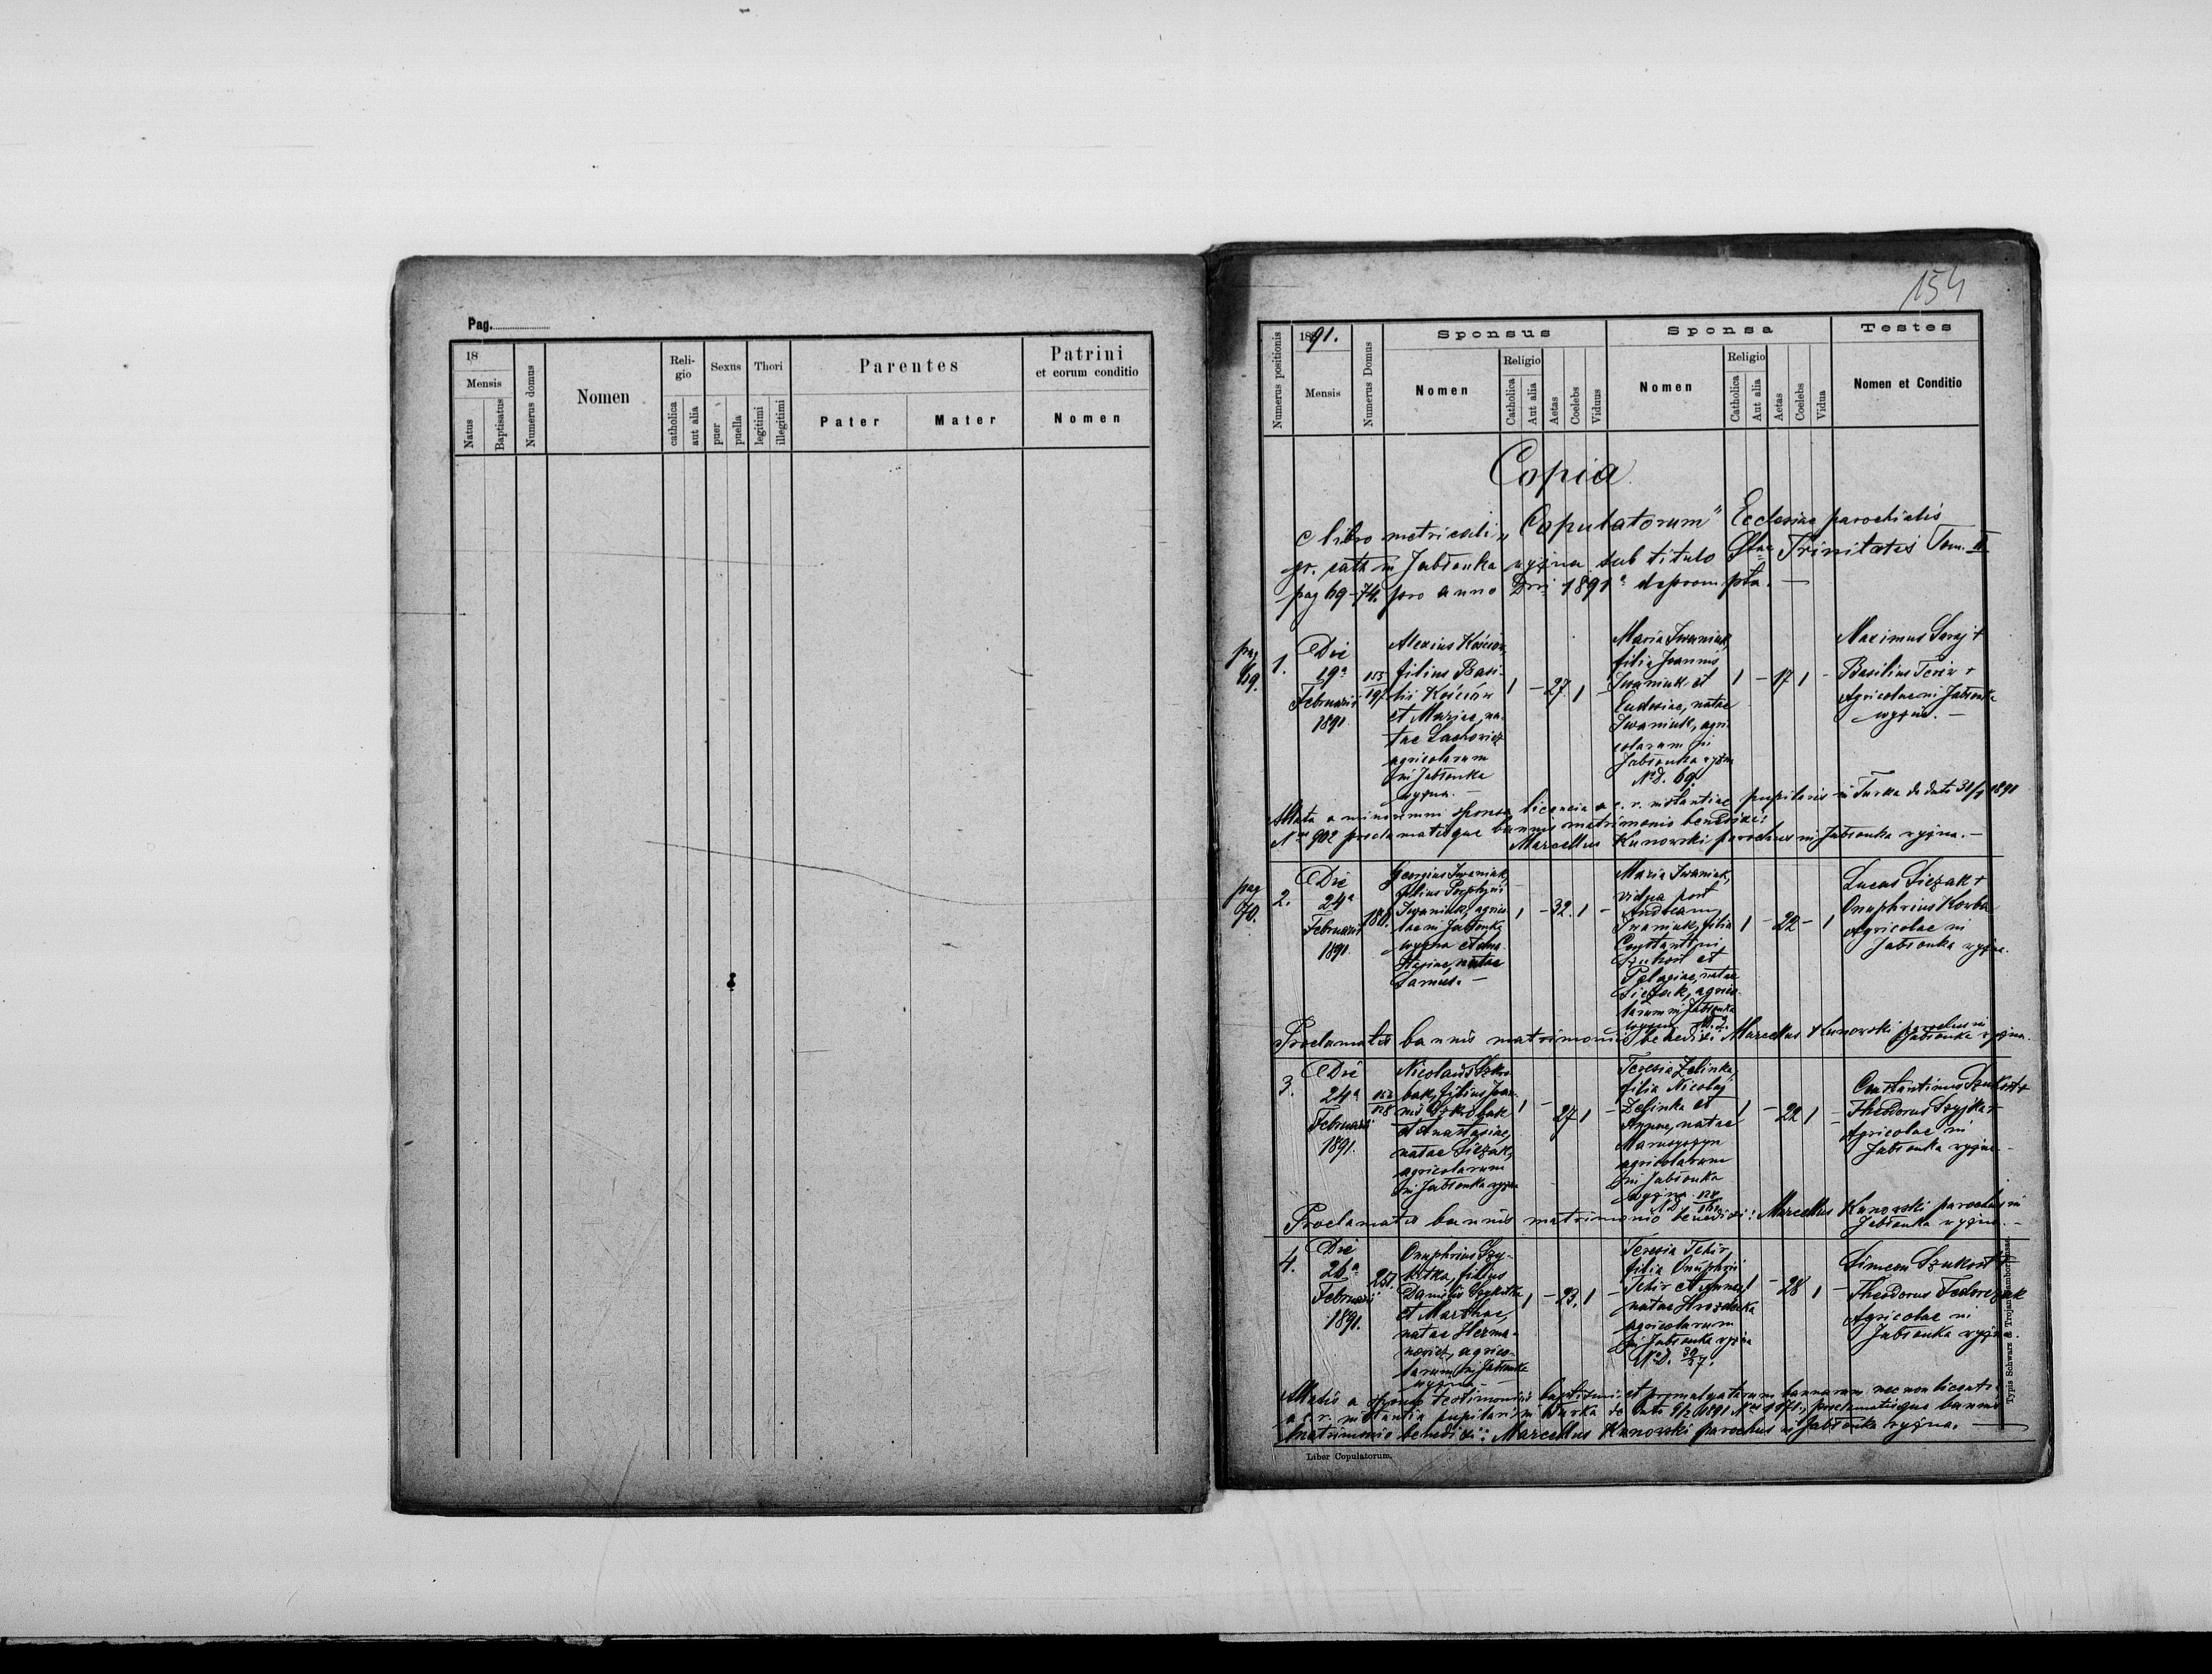 Pag.
18
Mensis
Natus
Baptisatus
Numerus domus
Nomen
Reli-
gio
catholica
aut alia
Sexus
puer
puella
Thori
legitimi
illegitimi
Parentes
Pater
Mater
Patrini
et eorum conditio
Nomen
154
Numerus positionis
1891.
Mensis
Numerus Domus
Sponsus
Nomen
Religio
Catholica
Aut alia
Aetas
Coelebs
Viduus
Sponsa
Nomen
Religio
Catholica
Aut alia
Aetas
Coelebs
Vidua
Testes
Nomen et Conditio
Copia
e libro metricali „Copulatorum" Ecclesiae parochialis
gr. cath in Jabłonka wyżna sub titulo Stae Trinitatis Tom. II
pag 69-74. pro anno Dni 1891 deprompta. —
pag
69.
1.
Die
19a
Februarii
1891
153
197
Alexius Kościów,
filius Basi-
lii Kościów
et Mariae, na-
tae Lachowicz
agricolarum
in Jabłonka
wyżna. —
1 - 27. 1 -
Maria Iwaniuk,
filia Joannis
Iwaniuk et
Eudosiae, natae
Iwaniuk, agri-
colarum in
Jabłonka wyżna
No D. 69.
1 - 17 1 -
Maximus Saraj +
Basilius +
Agricolae in Jabłonka
wyżna. —
Allata a minorenni sponsa licencia a c. r. instantiae pupilaris in Turka de dato 1891
No 902 proclamatisque bannis matrimonio benedixi:
Marcellus Kunowski parochus in Jabłonka wyżna. —
pag
70.
2.
Die
24a
Februarii
1891.
180.
Georgius Iwaniuk,
filius Porphyrii
Iwaniuk, agrico-
lae in Jabłonka
wyżna et Ana-
stasiae, natae
—
1 - 32. 1 -
Maria Iwaniuk,
vidua post
Andream
Iwaniuk, filia
Constantini
Szukost et
Pelagiae, natae
Siezak, agrico-
larum in Jabłonka
wyżna
1 - 22 - 1
Lucas Siezak +
Onuphrius Korba
Agricolae in
Jabłonka wyżna.
Proclamatis bannis matrimonio benedixi Marcellus Kunowski parochus in
Jabłonka wyżna.
3.
Die
24a
Februarii
1891.
152
128
Nicolaus Szkro-
bak, filius Joan-
nis Szkrobak
et Anastasiae,
natae Siezak,
agricolarum
in Jabłonka wyżna
1 - 27 1 -
Teresia Zelinka,
filia Nicolai
Zelinka et
Annae, natae
Marusyszyn
agricolarum
in Jabłonka
wyżna
1 - 22 1 -
Constantinus Szukost +
Theodorus Szyjka +
Agricolae in
Jabłonka wyżna —
Proclamatis bannis matrimonio benedixi: Marcellus Kunowski parochus in
Jabłonka wyżna. —
4.
Die
26a
Februarii
1891.
257.
Onuphrius Szy-
kitka, filius
Danielis Szykitka
et Marthae,
natae Herma-
nowicz, agrico-
larum in Jabłonka
wyżna —
1 - 23. 1 -
Teresia Tchir,
filia Onuphrii
Tchir et Annae,
natae Hrozdecka
agricolarum
in Jabłonka wyżna
No D.
1 - 28 1 -
Simeon Szukost +
Theodorus Fedorczak
Agricolae in
Jabłonka wyżna.
Allatis a sponso testimoniis baptismi et promulgatarum bannarum nec non licentia
a c. r. instantia pupilari in Turka de dato 9/2 1891 proclamatisque bannis
matrimonio benedixi: Marcellus Kunowski parochus in Jabłonka wyżna. —
Liber Copulatorum.
Typis Schwarz & Trojan Samborienses.